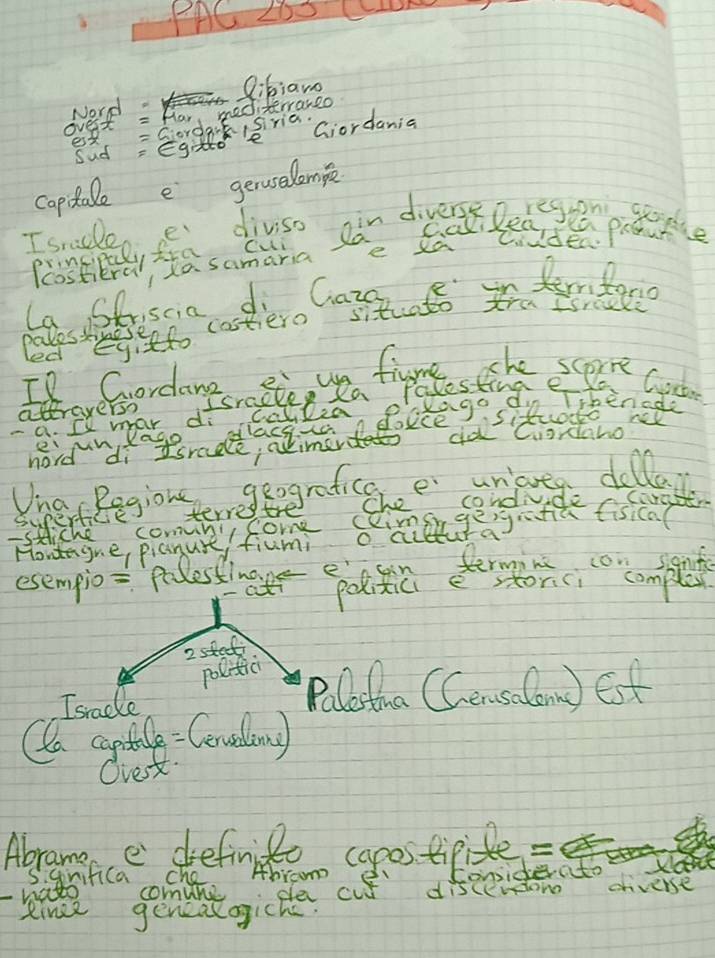 PAG 283
Nord = libiano
ovest = Mar mediterraneo
est = Giordania, Siria.
Sud = Egitto e Giordania
Capitale e' gerusalemme
Israele e' diviso in diverse regioni
principali, tra cui la Galilea, la pianura
costiera, la samaria e la Giudea.
La Striscia di Gaza e' un territorio
palestinese costiero situato tra Israele
ed Egitto
Il Giordano e' un fiume che scorre
attraverso Israele, la Palestina e la
- a. Il mar di Galilea o lago di Tiberiade
e' un lago d'acqua dolce situato nel
nord di Israele, alimentato dal Giordano.
Una Regione geografica e' un'area della
superficie terrestre che condivide caratte-
-stiche comuni, come clima, geografia fisica(
Montagne, pianure, fiumi o cultura
esempio = Palestina e' un termine con signific
-ati politici e storici compless.
2 stati
politici
Israele
(la capitale = Gerusalemme)
Ovest.
Palestina (Gerusalemme) Est
Abramo e' definito capostipite =
significa che Abramo e' considerato
-nato comune da cui discendono diverse
linee genealogiche.